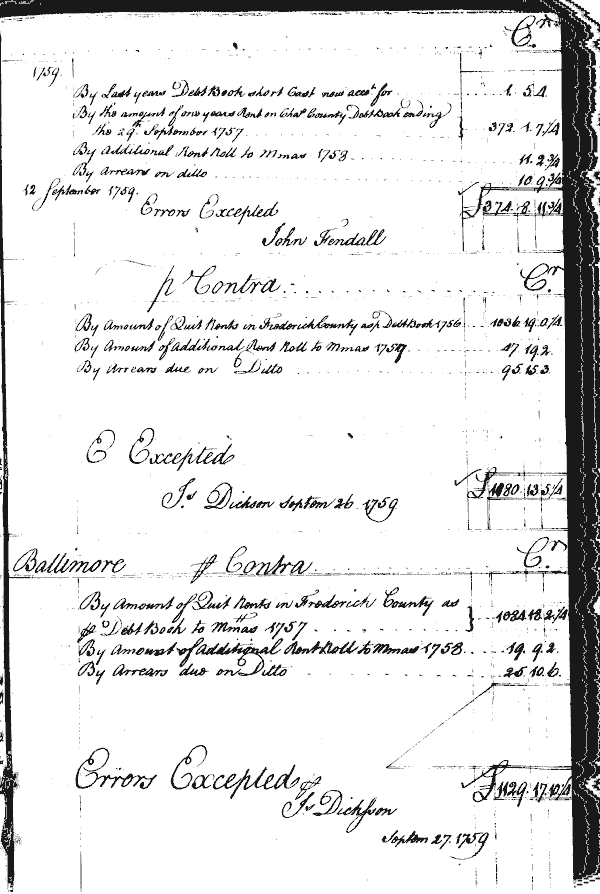 Cr
1759.
By Last years Debt Book short Cast now acct for 1. 5. 4
By the amount of one years Rent on Chas County Debt Book ending
the 29th September 1757 } 372. 1. 7 1/4
By Additional Rent Roll to Mmas 1758 11. 2 3/4
By Arrears on ditto 10. 9 3/4
12 September 1759.
Errors Excepted £374. 8. 11 3/4
John Fendall
pr Contra Cr
By Amount of Quit Rents in Frederick County as p Debt Book 1756 1036. 19. 0 1/4
By Amount of Additional Rent Roll to Mmas 1757 47. 19. 2
By Arrears due on Ditto 95. 15. 3
E Excepted
Js Dickson Septem 26 1759 £1180. 13. 5 1/4
Baltimore pr Contra Cr
By Amount of Quit Rents in Frederick County as
pr Debt Book to Mmas 1757 } 1084. 18. 2 1/4
By Amount of Additional Rent Roll to Mmas 1758 19. 9. 2
By Arrears due on Ditto 25. 10. 6
Errors Excepted pr £1129. 17. 10 1/4
Js Dickson
Septem 27. 1759